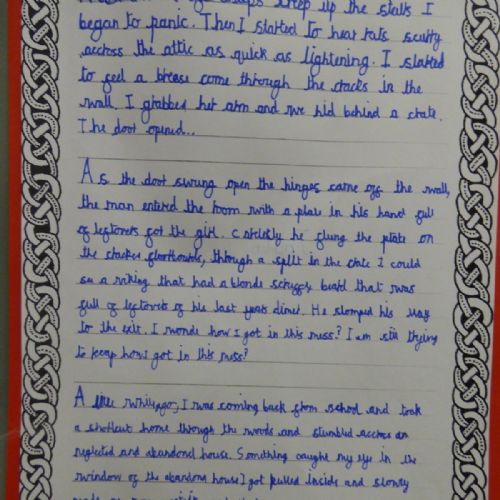 creep up the stairs I
began to panic. Then I started to hear rats scutty
accross the attic as quick as lightening. I started
to feel a brease come through the cracks in the
wall. I grabbed her arm and we hid behind a crate.
The door opened...
As the door swung open the hinges came off the wall,
the man entered the room with a plate in his hand full
of leftovers for the girl. he flung the plate on
the floorboards, through a split in the crate I could
see a viking that had a blonde scruffy beard that was
full of leftovers of his last years diner. He stomped his way
to the exit. I wonder how I got in this mess? I am still trying
to how I got in this mess?
A while ago, I was coming back from school and took
a shortcut home through the woods and stumbled accross an
neglected and abandond house. Something caught my eye in the
window of the abandond house I got pulled inside and slowly